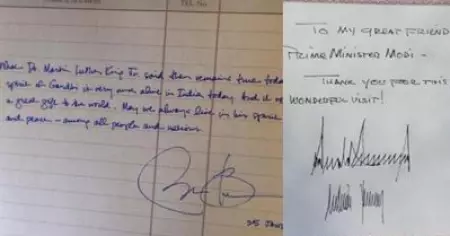 TEL No
What Dr. Martin Luther King Jr. said then remains true today
spirit of Gandhi is very much alive in India today. And it
a great gift to the world. May we always live in his spirit
and peace - among all people and nations.
25 Jan
TO MY GREAT FRIEND
PRIME MINISTER MODI -
THANK YOU FOR THIS
WONDERFUL VISIT!